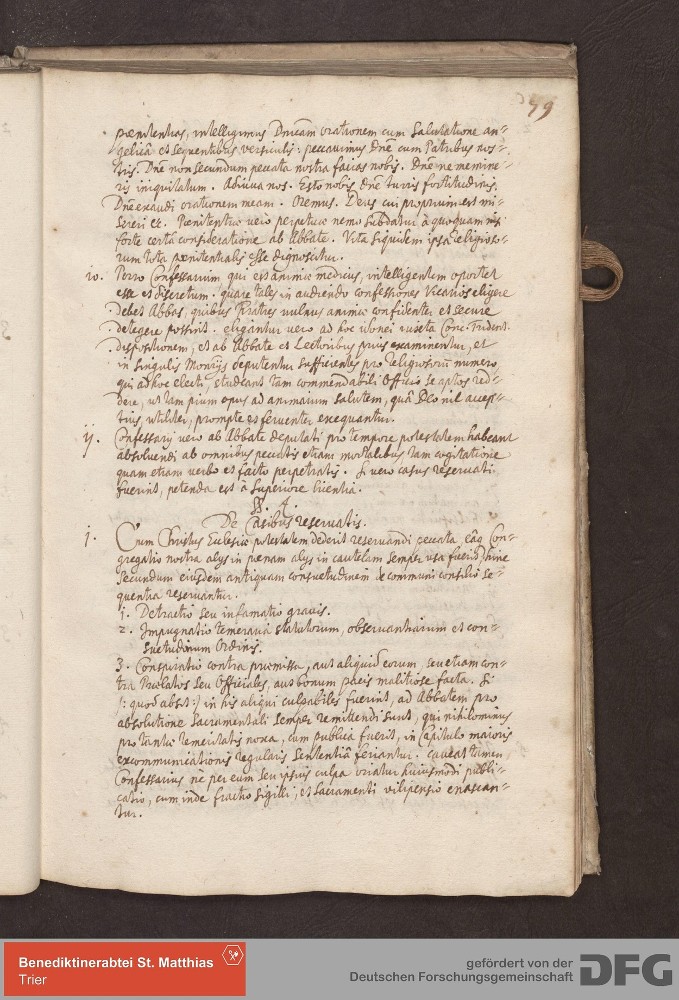 79
pœnitentias, intelligimus Dnicam orationem cum Salutatione an=
gelica et sequentibus versiculis: peccavimus Dne cum Patribus nos=
tris. Dne non secundum peccata nostra facias nobis. Dne ne memine=
ris iniquitatum. Adiuva nos. Esto nobis Dne turris fortitudinis.
Dne exaudi orationem meam. Oremus. Deus cui proprium est mi=
sereri etc. Pœnitentiæ vero perpetuæ nemo subdatur à quoquam nisi
forte certa consideratione ab Abbate. Vita siquidem ipsa religioso=
rum tota pœnitentialis esse dignoscitur.
10. Porro Confessarium qui est animæ medicus, intelligentem oportet
esse et discretum. quare tales in audiendo confessiones Vicarios eligere
debet Abbas, quibus Fratres vulnus animæ confidenter et secure
detegere possint. eligantur vero ad hoc idonei iuxta Conc. Trident.
dispositionem, et ab Abbate et Lectoribus prius examinentur, et
in singulis Monrijs deputentur sufficientes pro religiosorum numero,
qui ad hoc electi, studeant tam commendabili Officio se aptos red=
dere, ut tam pium opus ad animarum salutem, quâ Deo nil accep=
tius utiliter, prompte et ferventer exequantur.
ij. Confessarij vero ab Abbate deputati pro tempore potestatem habeant
absolvendi ab omnibus peccatis etiam mortalibus tam cogitatione
quam etiam verbo et facto perpetratis. Si vero casus reservati
fuerint, petenda est à Superiore licentia.
§. 4.
De Casibus reservatis.
j. Cum Christus Ecclesiæ potestatem dederit reservandi peccata eâq Con=
gregatio nostra alijs in pœnam alijs in cautelam semper usa fuerit, hinc
secundum eiusdem antiquam consuetudinem de communi consilio se=
quentia reservantur.
1. Detractio seu infamatio gravis.
2. Impugnatio temeraria statutorum, observantiarum et con=
suetudinum Ordinis.
3. Conspiratio contra præmissa, aut aliquid eorum, seu etiam con=
tra Prælatos seu Officiales, aut bonum pacis malitiose facta. Si
|: quod absit :| in his aliqui culpabiles fuerint, ad Abbatem pro
absolutione Sacramentali semper remittendi sunt, qui nihilominus
pro tantæ temeritatis noxa, cum publica fuerit, in Capitulo maioris
excommunicationis regularis sententiâ feriantur. caveat tamen
Confessarius nè per eum seu ipsius culpa oriatur huiusmodi publi=
catio, cum inde fractio sigilli, et Sacramenti vilipensio enascan=
tur.
Benediktinerabtei St. Matthias
Trier
gefördert von der
Deutschen Forschungsgemeinschaft
DFG